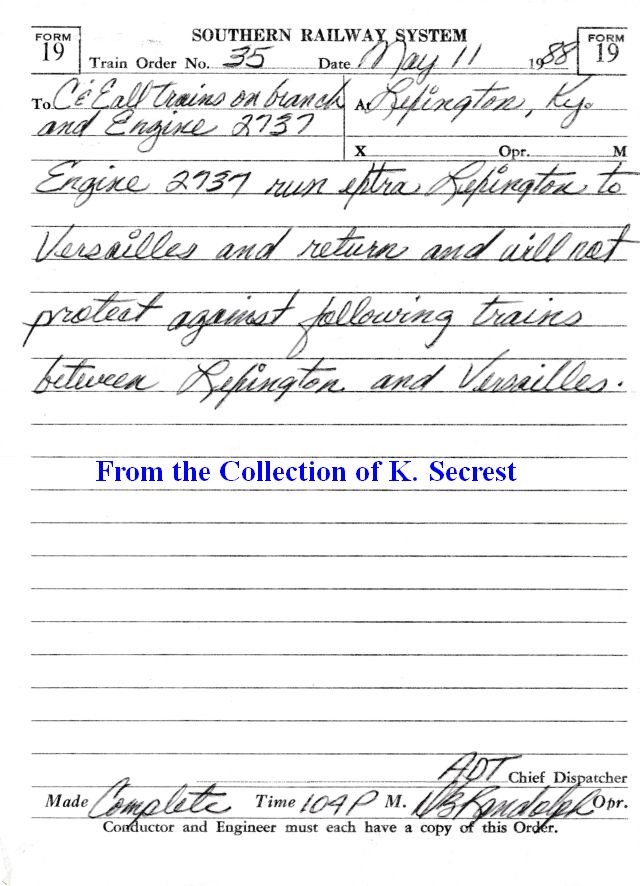 FORM 19
SOUTHERN RAILWAY SYSTEM
FORM 19
Train Order No. 35 Date May 11 1988
To C&E all trains on branch
and Engine 2737
At Lexington, Ky.
X Opr. M
Engine 2737 run extra Lexington to
Versailles and return and will not
protect against following trains
between Lexington and Versailles.
From the Collection of K. Secrest
ADT Chief Dispatcher
Made Complete Time 104 P M. Randolph Opr.
Conductor and Engineer must each have a copy of this Order.